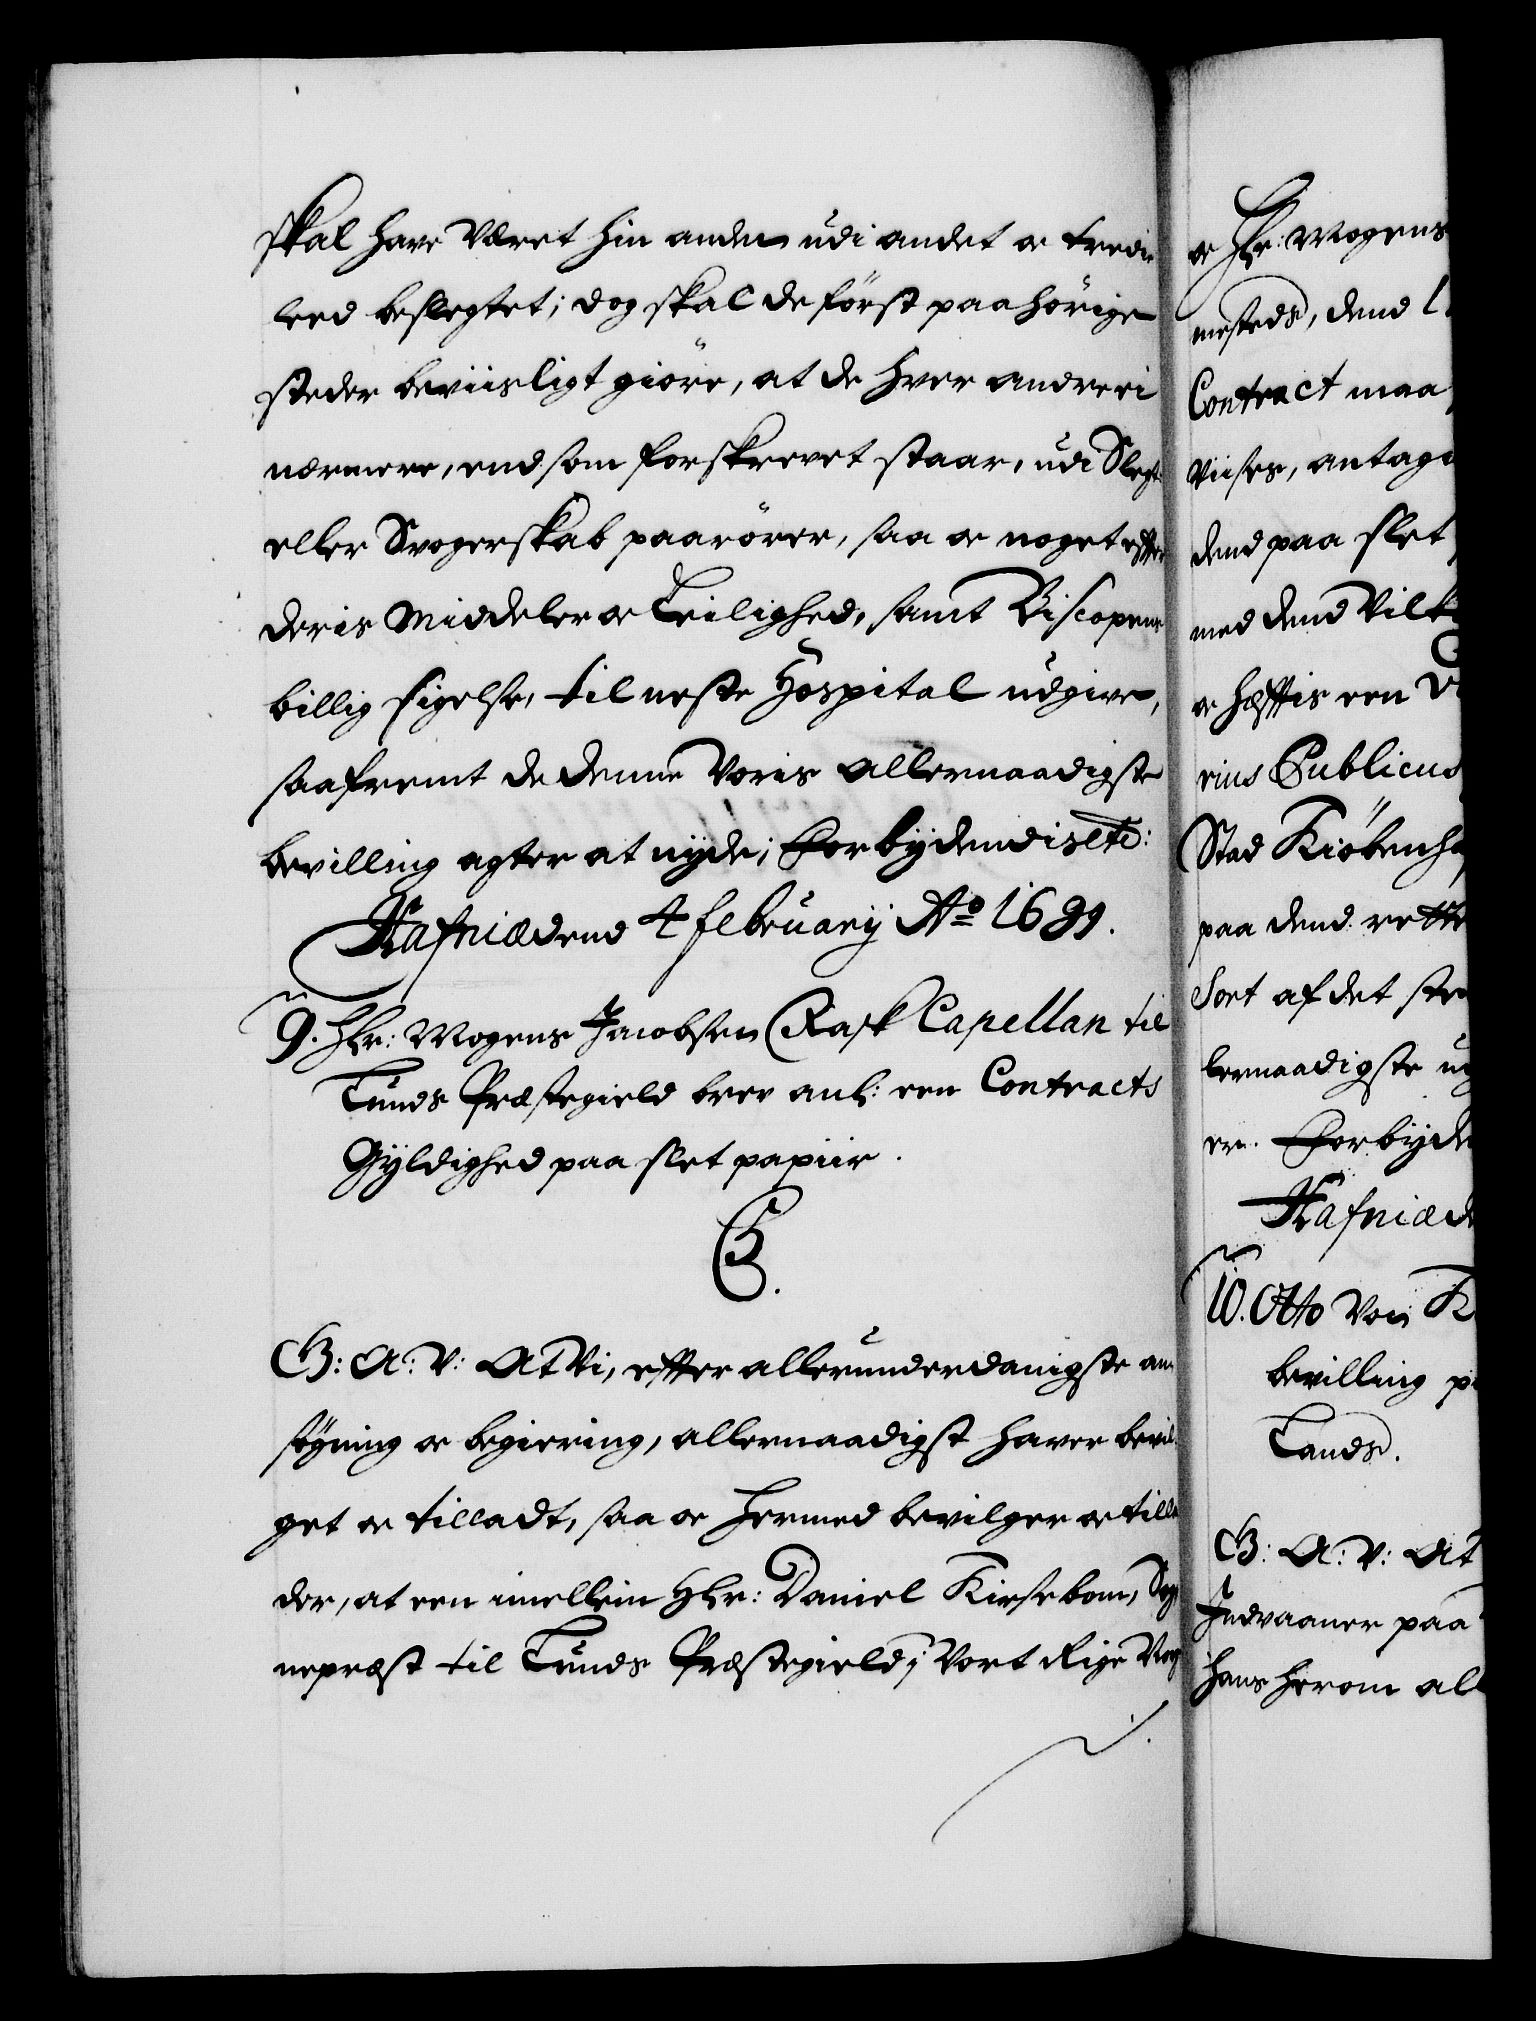 skal have Været hin anden udi andet oc tredie
leed beslegtet; dog skal de först paahörige
steder beviisligt giöre, at de hver andre ei
nærmere, end som forskrevet staar, udi Slegt
eller Svogerskab paarörer, saa oc noget efter
deris Middeler oc Leilighed, samt Biscopens
billig sigelse, til neste Hospital udgive,
saafremt de denne Voris allernaadigste
bevilling agter at nyde; Forbydendis etc:
Hafniæ dend 4 february Ao 1689.
9. Hr: Mogens Jacobsen Rask Capellan til
Lunds Præstegield brev anl: een Contracts
Gyldighed paa slet papiir.
G: A: V: At Vi, efter allerunderdanigste an
sögning oc begiering, allernaadigst haver bevil
get oc tilladt, saa oc hermed bevilger oc tilla
der, at een imellem Hr: Daniel Kirsebom, Sog
nepræst til Lunds Præstegield i Vort Rige Norg
oc Hr: Mogens
mesteds, dend
Contract maa
viises, antage
dend paa slet
med dend Vilk
oc hæftis een
rius Publicus
Stad Kiöbenha
paa dend rette
Sort af det ste
lernaadigste ud
er. Forbyde
Hafniæ de
10. Otto Von K
bevilling p
Lands.
G: A: V: At
Indvaaner paa
hans herom all